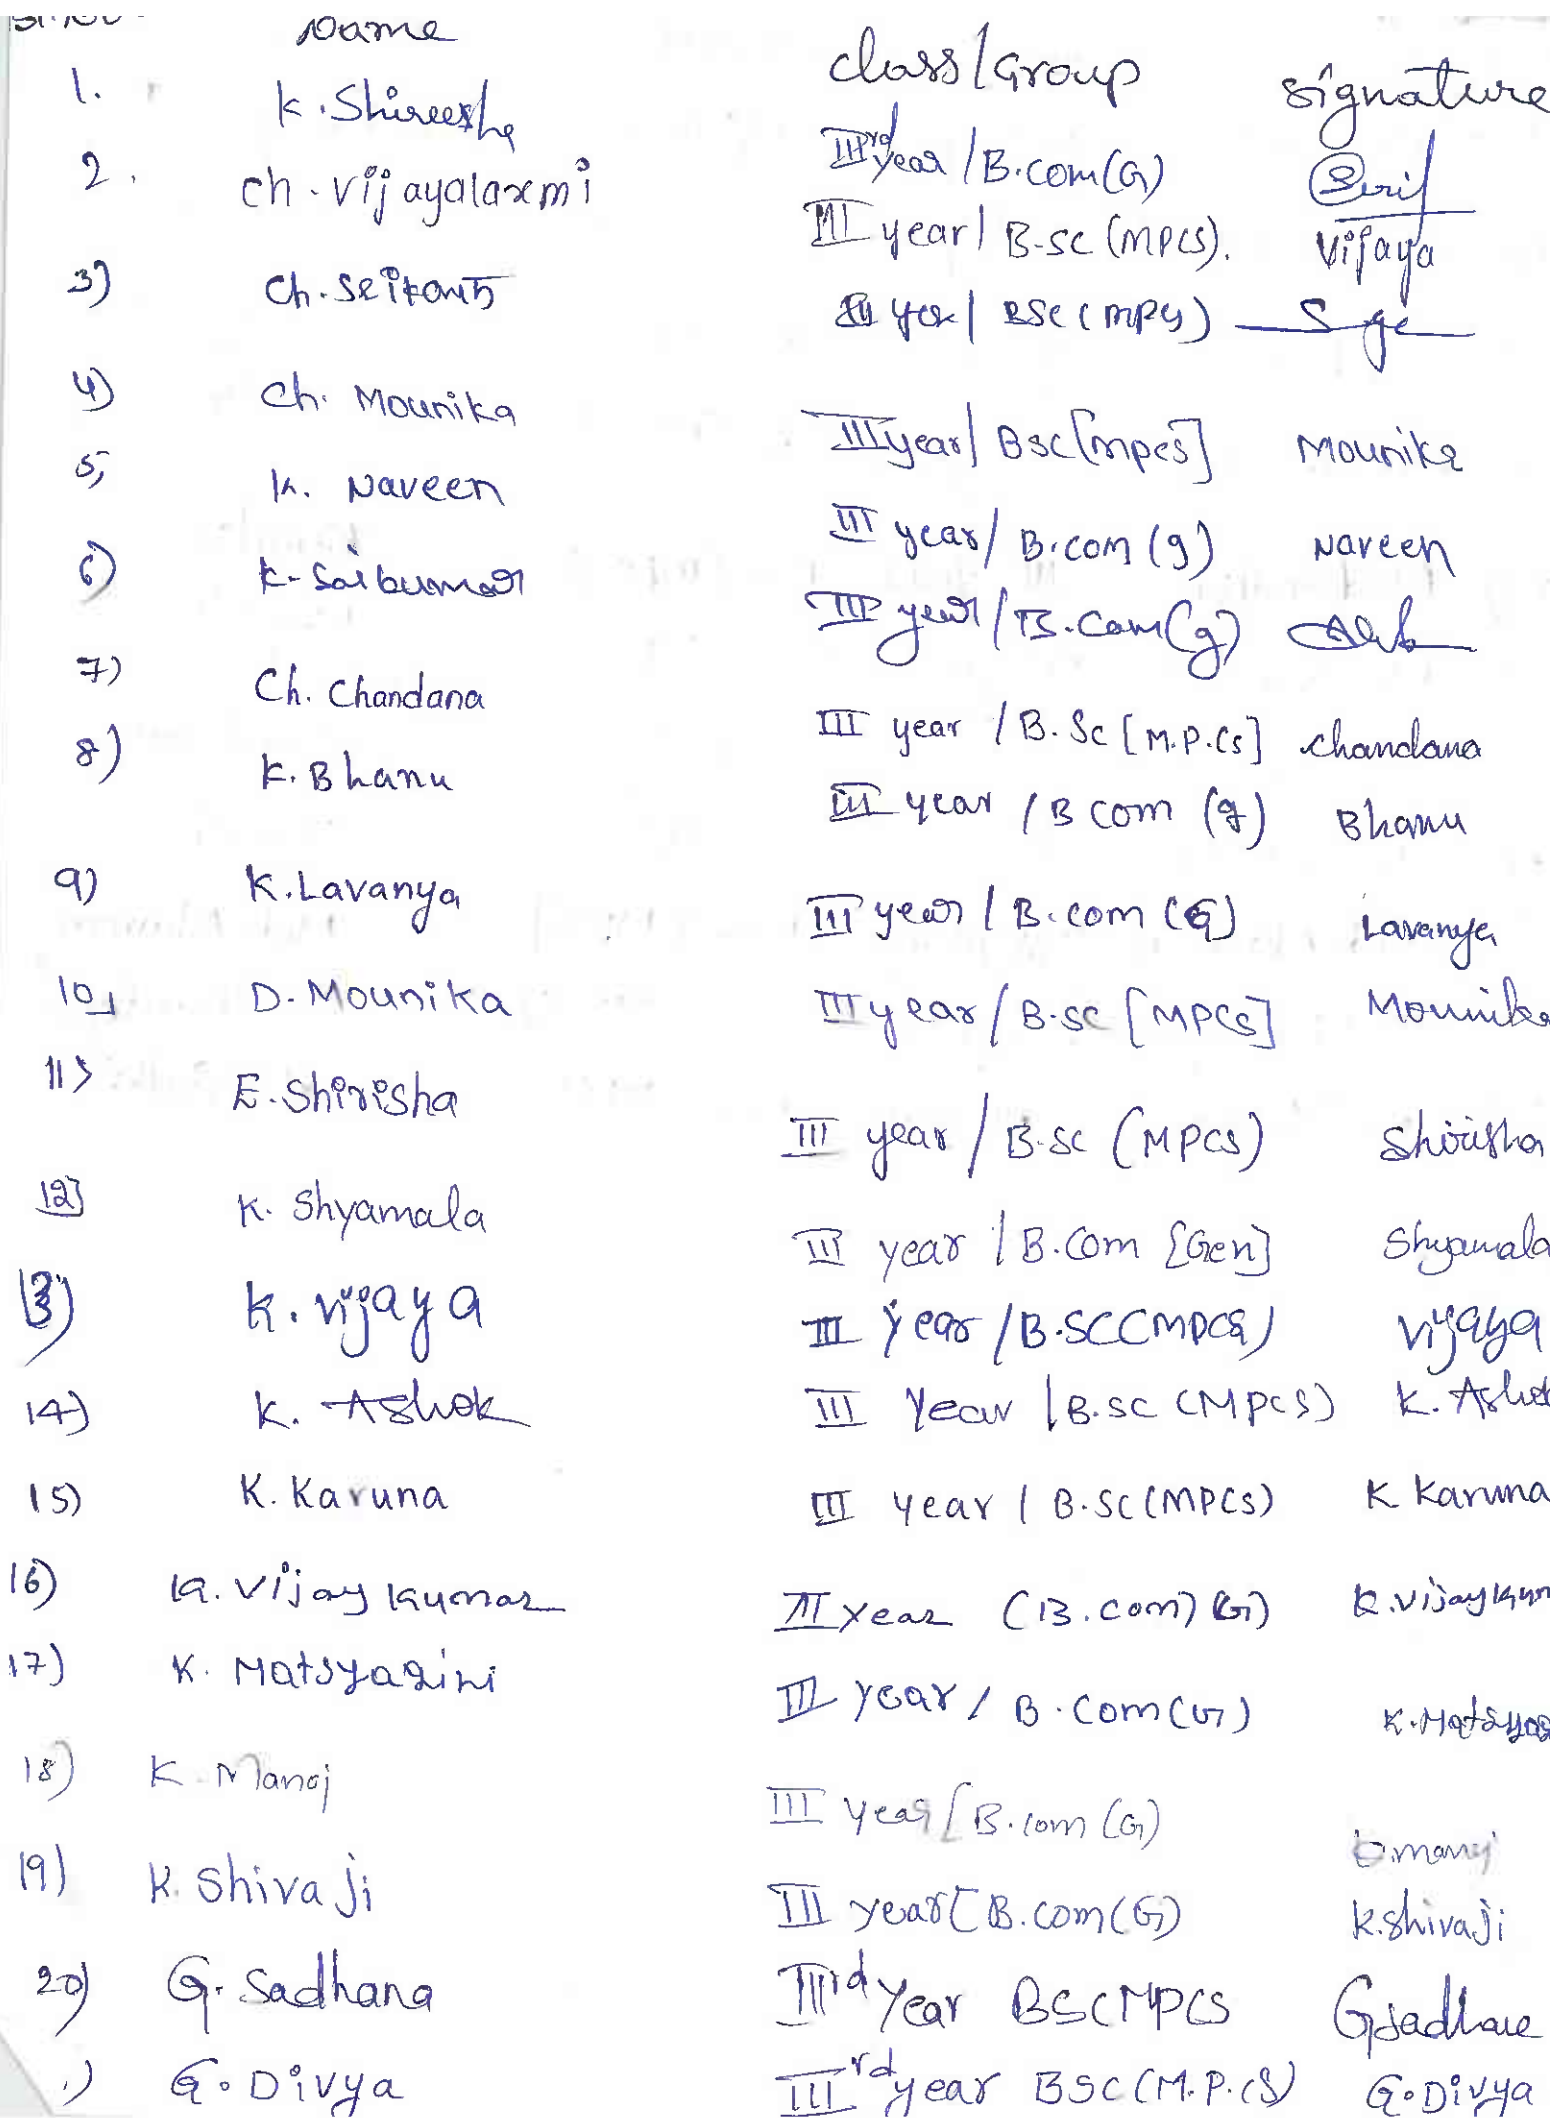 Sl.No. Name class/Group signature
1. K. Shireesha IIIrd year / B.com(G)
2. Ch. Vijayalaxmi III year / B-sc (MPCS). Vijaya
3) Ch. Srikanth III year / BSC (MPCS)
4) Ch. Mounika III year / Bsc [mpcs] Mounika
5) K. Naveen III year / B.com (g) Naveen
6) K- Saikumar III year / B.Com (g)
7) Ch. Chandana III year / B.Sc [M.P.Cs] chandana
8) K. Bhanu III year / B com (g) Bhanu
9) K. Lavanya III year / B.com (G) Lavanya
10) D. Mounika III year / B.sc [MPCS] Mounika
11> E. Shirisha III year / B.sc (MPCS) Shirisha
12] K. Shyamala III year / B.Com [Gen] Shyamala
13) K. Vijaya III year / B.SC (MPCS) Vijaya
14) K. Ashok III Year / B.SC (MPCS) K. Ashok
15) K. Karuna III year / B.SC (MPCS) K Karuna
16) K. Vijay Kumar III year (B.com) (G) K.vijaykum
17) K. Matsyagiri III year / B.Com (G) K.Matsyag
18) K. Manoj III year / B.com (G)
19) K. Shivaji III year [B.com (G) K.Shivaji
20) G. Sadhana IIIrd Year BSC MPCS
) G. Divya IIIrd year BSC (M.P.CS) G. Divya